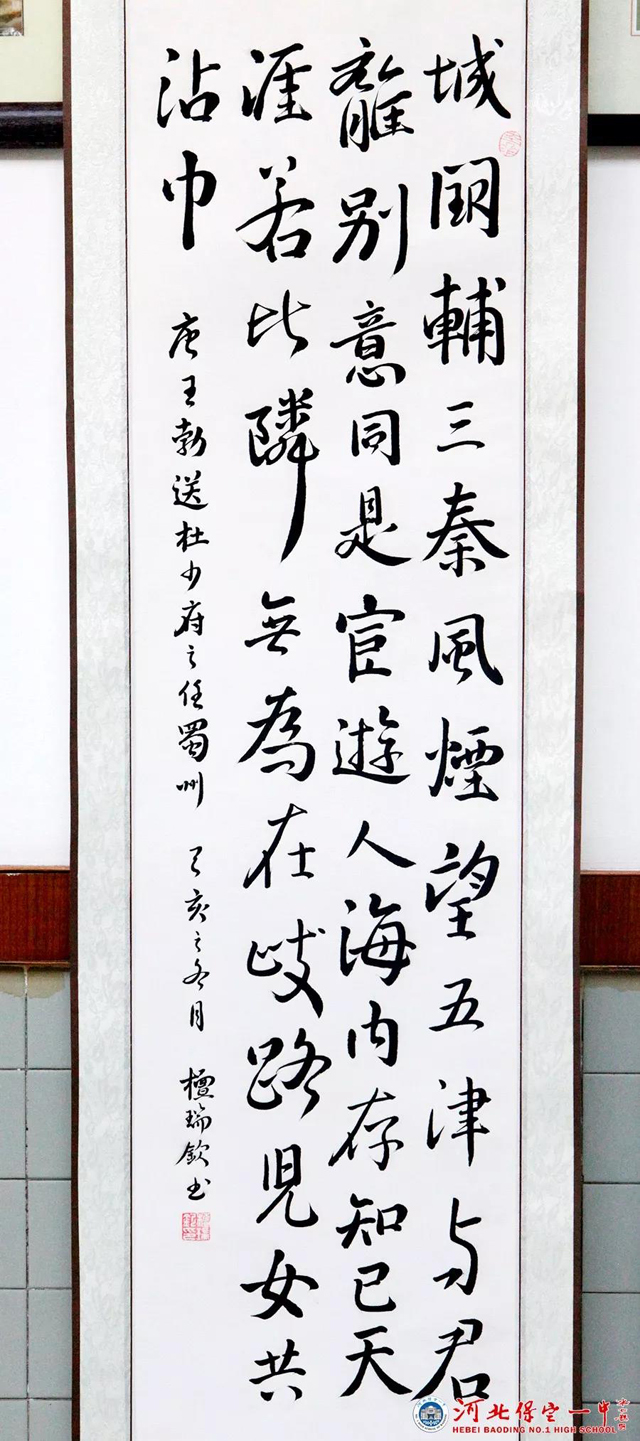 城闕輔三秦風煙望五津与君
離別意同是宦遊人海内存知己天
涯若比隣無為在歧路児女共
沾巾
唐王勃送杜少府之任蜀州 己亥之冬月 檀瑞欽书
河北保定一中
HEBEI BAODING NO.1 HIGH SCHOOL